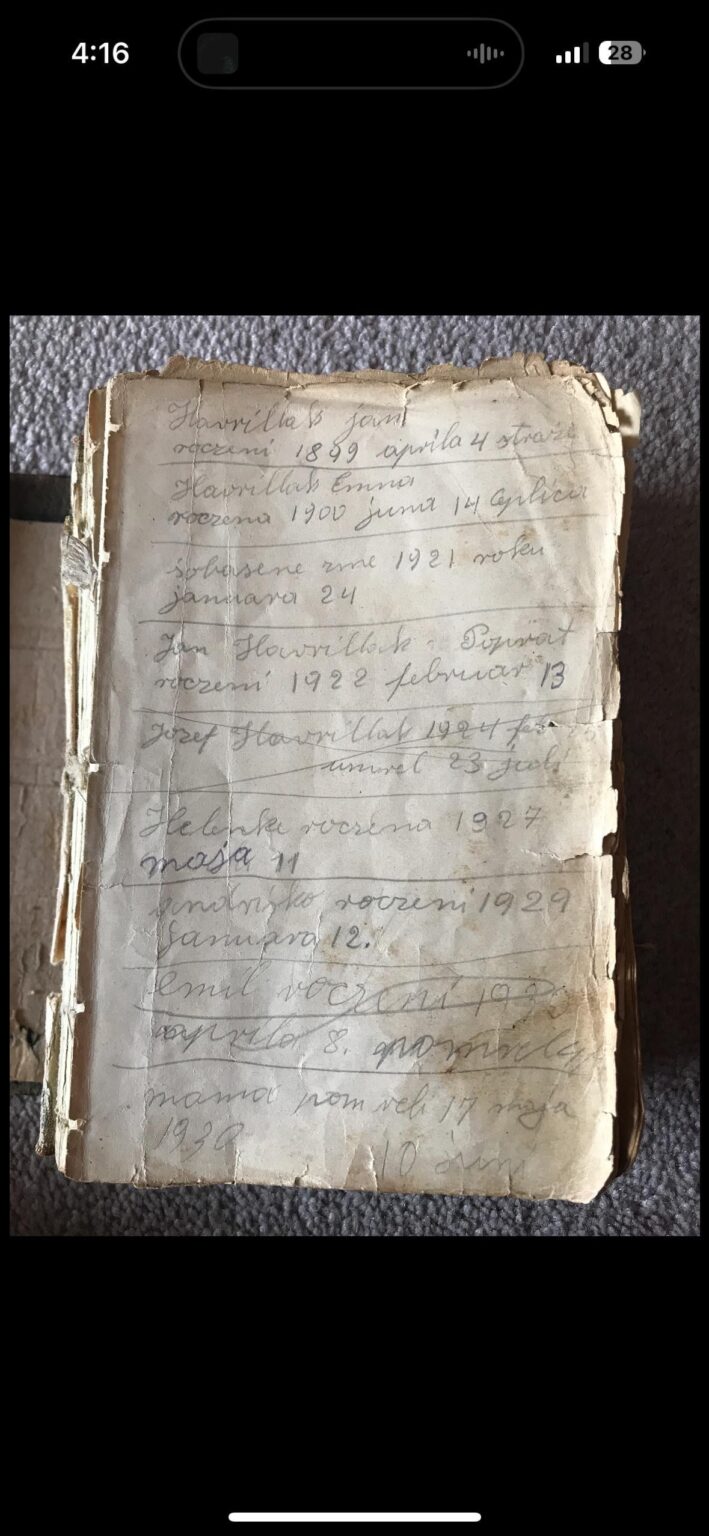 4:16
28
Havrillak jan
roczeni 1899 aprila 4 straže
Havrillak Emna
roczena 1900 juna 14 Cplica
šobasene zme 1921 roku
januara 24
Jan Havrillak Poprat
roczeni 1922 februar 13
Jozef Havrillak 1924
umrel 23 juli
Helenka roczena 1927
maja 11
roczeni 1929
januara 12.
Emil roczeni
aprila 8.
mama pomreli 17 maja
1930
10 juni